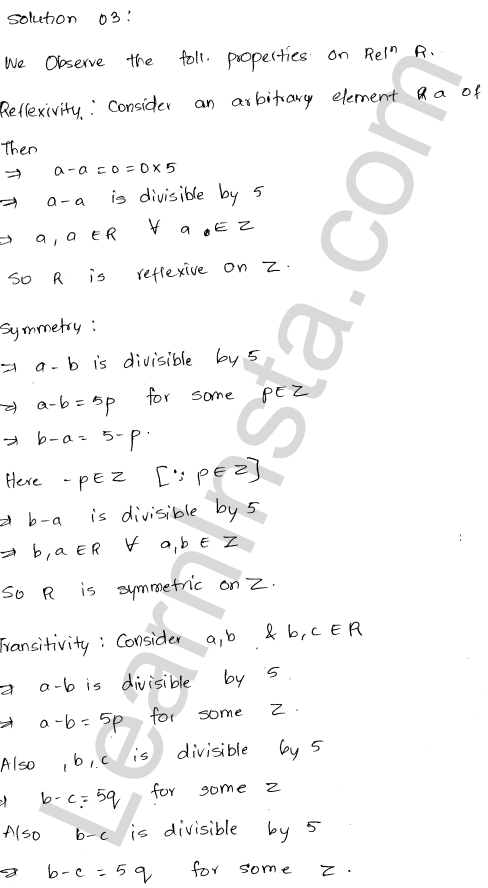 Solution 03:
We Observe the foll. properties on Relⁿ R.
Reflexivity: Consider an arbitrary element R a of
Then
⇒ a-a = 0 = 0×5
⇒ a-a is divisible by 5
⇒ a, a ∈ R ∀ a ∈ Z
So R is reflexive on Z.
Symmetry:
⇒ a-b is divisible by 5
⇒ a-b = 5p for some p∈Z
⇒ b-a = 5-p.
Here -p∈Z [∵ p∈Z]
⇒ b-a is divisible by 5
⇒ b, a ∈ R ∀ a,b ∈ Z
So R is symmetric on Z.
Transitivity: Consider a,b & b,c ∈ R
⇒ a-b is divisible by 5.
⇒ a-b = 5p for some Z.
Also, b, c is divisible by 5
⇒ b-c = 5q for some Z
Also b-c is divisible by 5
⇒ b-c = 5q for some Z.
LearnInsta.com